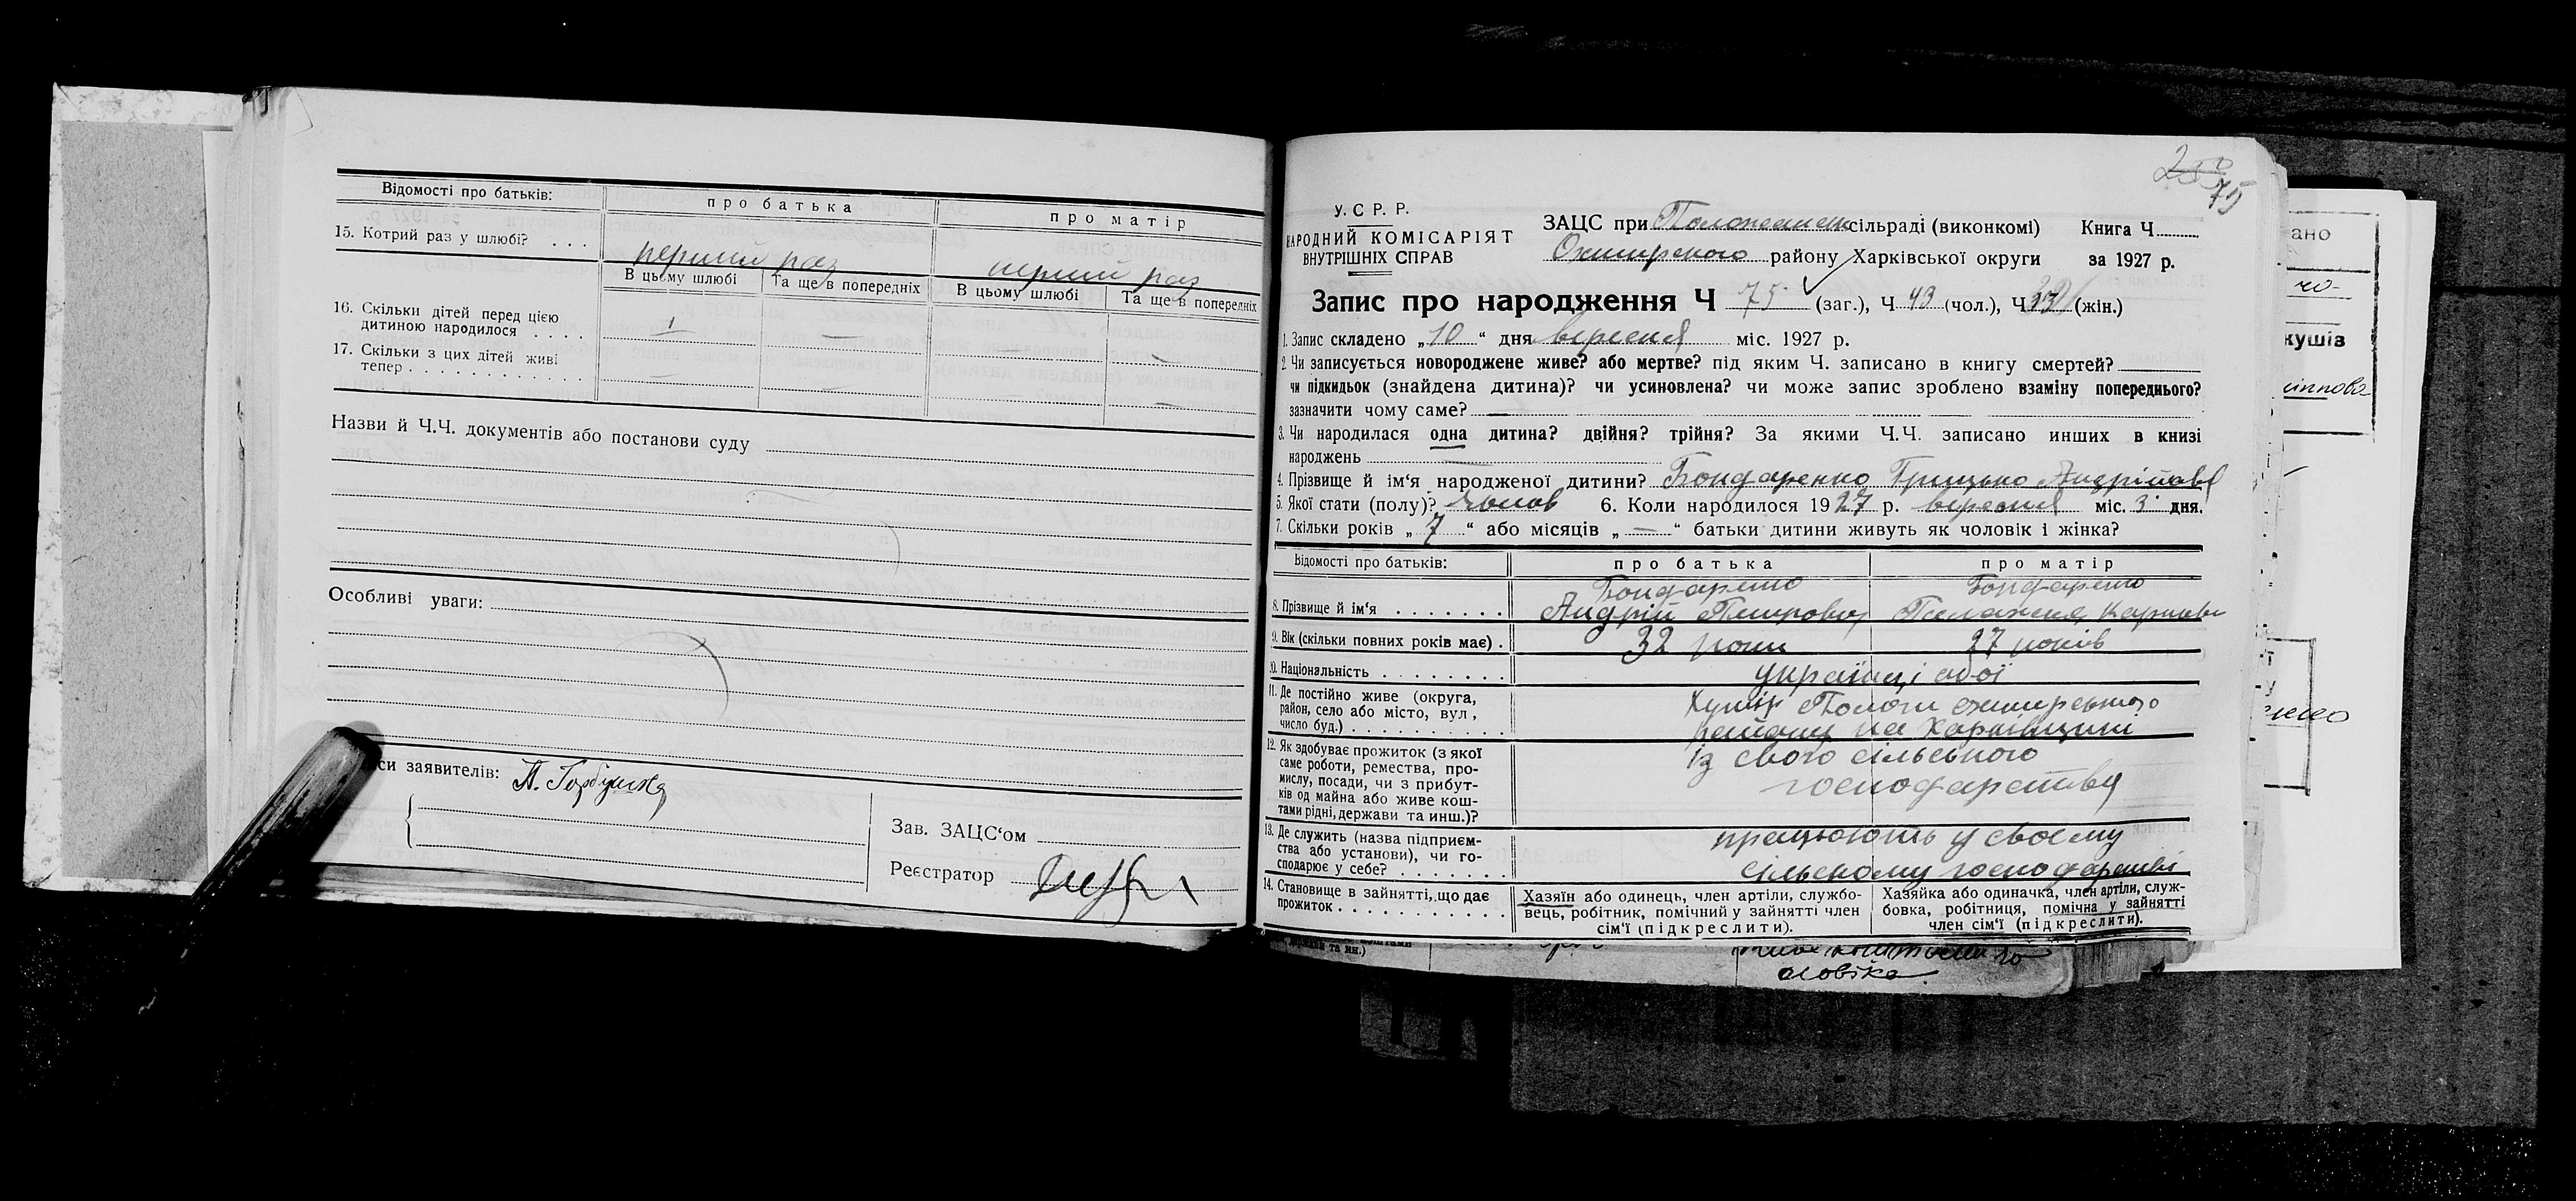 Відомості про батьків:
про батька
про матір
15. Котрий раз у шлюбі? . . .
перший раз
перший раз
В цьому шлюбі
Та ще в попередніх
В цьому шлюбі
Та ще в попередніх
16. Скільки дітей перед цією
дитиною народилося . . . .
1 — — —
17. Скільки з цих дітей живі
тепер . . . . . . . . . . . .
— — —
Назви й Ч.Ч. документів або постанови суду
Особливі уваги:
си заявителів: А. Горбушка
Зав. ЗАЦС'ом
Реєстратор
253
75
У. С Р. Р.
НАРОДНИЙ КОМІСАРІЯТ
ВНУТРІШНІХ СПРАВ
ЗАЦС при сільраді (виконкомі) Книга Ч.
району Харківської округи за 1927 р.
Запис про народження Ч 75 (заг.), Ч 43 (чол.), Ч (жін.)
1. Запис складено „10“ дня вересня міс. 1927 р.
2. Чи записується новороджене живе? або мертве? під яким Ч. записано в книгу смертей?
чи підкидьок (знайдена дитина)? чи усиновлена? чи може запис зроблено взаміну попереднього?
зазначити чому саме? —
3. Чи народилася одна дитина? двійня? трійня? За якими Ч.Ч. записано инших в книзі
народжень —
4. Прізвище й ім'я народженої дитини? Бондаренко Грицько Андрійов
5. Якої стати (полу)? чолов 6. Коли народилося 1927 р. вересня міс. 3 дня.
7. Скільки років „7“ або місяців „—“ батьки дитини живуть як чоловік і жінка?
Відомості про батьків:
про батька
про матір
8. Прізвище й ім'я . . . . . . .
Бондаренко
Андрій
Бондаренко
9. Вік (скільки повних років має) .
32 роки
27 років
10. Національність . . . . . . . .
українці обої
11. Де постійно живе (округа,
район, село або місто, вул.,
число буд.) . . . . . . . . . .
Хутір Пологи
району на Харківщині
12. Як здобуває прожиток (з якої
саме роботи, ремества, про-
мислу, посади, чи з прибут-
ків од майна або живе кош-
тами рідні, держави та инш.)?
із свого сільського
господарства
13. Де служить (назва підприєм-
ства або установи), чи го-
сподарює у себе? . . . . . . .
працюють у своєму
сільському господарстві
14. Становище в зайнятті, що дає
прожиток . . . . . . . . . . .
Хазяїн або одинець, член артіли, службо-
вець, робітник, помічний у зайнятті член
сім'ї (підкреслити).
Хазяйка або одиначка, член артіли, служ-
бовка, робітниця, помічна у зайнятті
член сім'ї (підкреслити).
держави та ин.)
ано
кушів